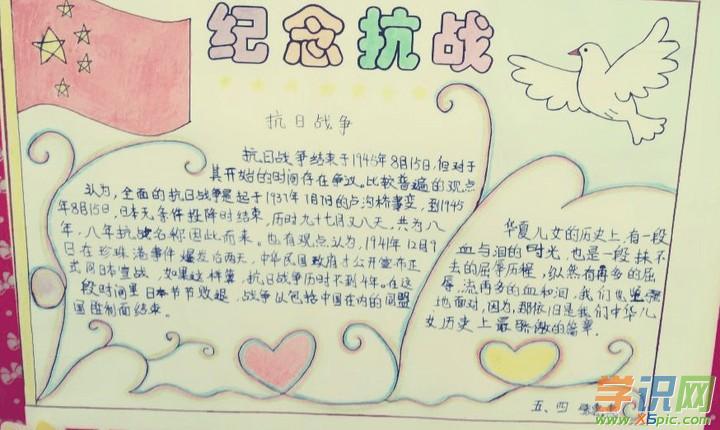 纪念抗战
抗日战争
抗日战争结束于1945年8月15日,但对于
其开始的时间存在争议。比较普遍的观点
认为,全面的抗日战争是起于1937年7月7的卢沟桥事变,到1945
年8月15日,日本无条件投降时结束,历时九十七月又八天,共为八
年,八年抗战名称因此而来。也有观点认为,1941年12月9
日在珍珠港事件爆发后两天,中华民国政府才公开宣布正
式向日本宣战,如果这样算,抗日战争历时不到4年。在这
段时间里日本节节败退,战争以包括中国在内的同盟
国胜利而结束。
华夏儿女的历史上,有一段
血与泪的时光,也是一段抹不
去的屈辱历程,纵然有再多的屈
辱,流再多的血和泪,我们也坚强
地面对,因为,那依旧是我们中华儿
女历史上最骄傲的篇章.
五、四
学识网
www.x5pic.com